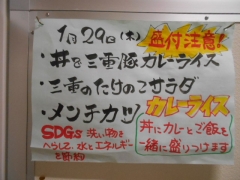 1月29日(木) 盛付注意!
・丼を三重豚カレーライス
・三重のたけのこサラダ
・メンチカツ
カレーライス
丼にカレーとご飯を
一緒に盛りつけます
SDGs 洗い物を
へらして、水とエネルギー
を節約